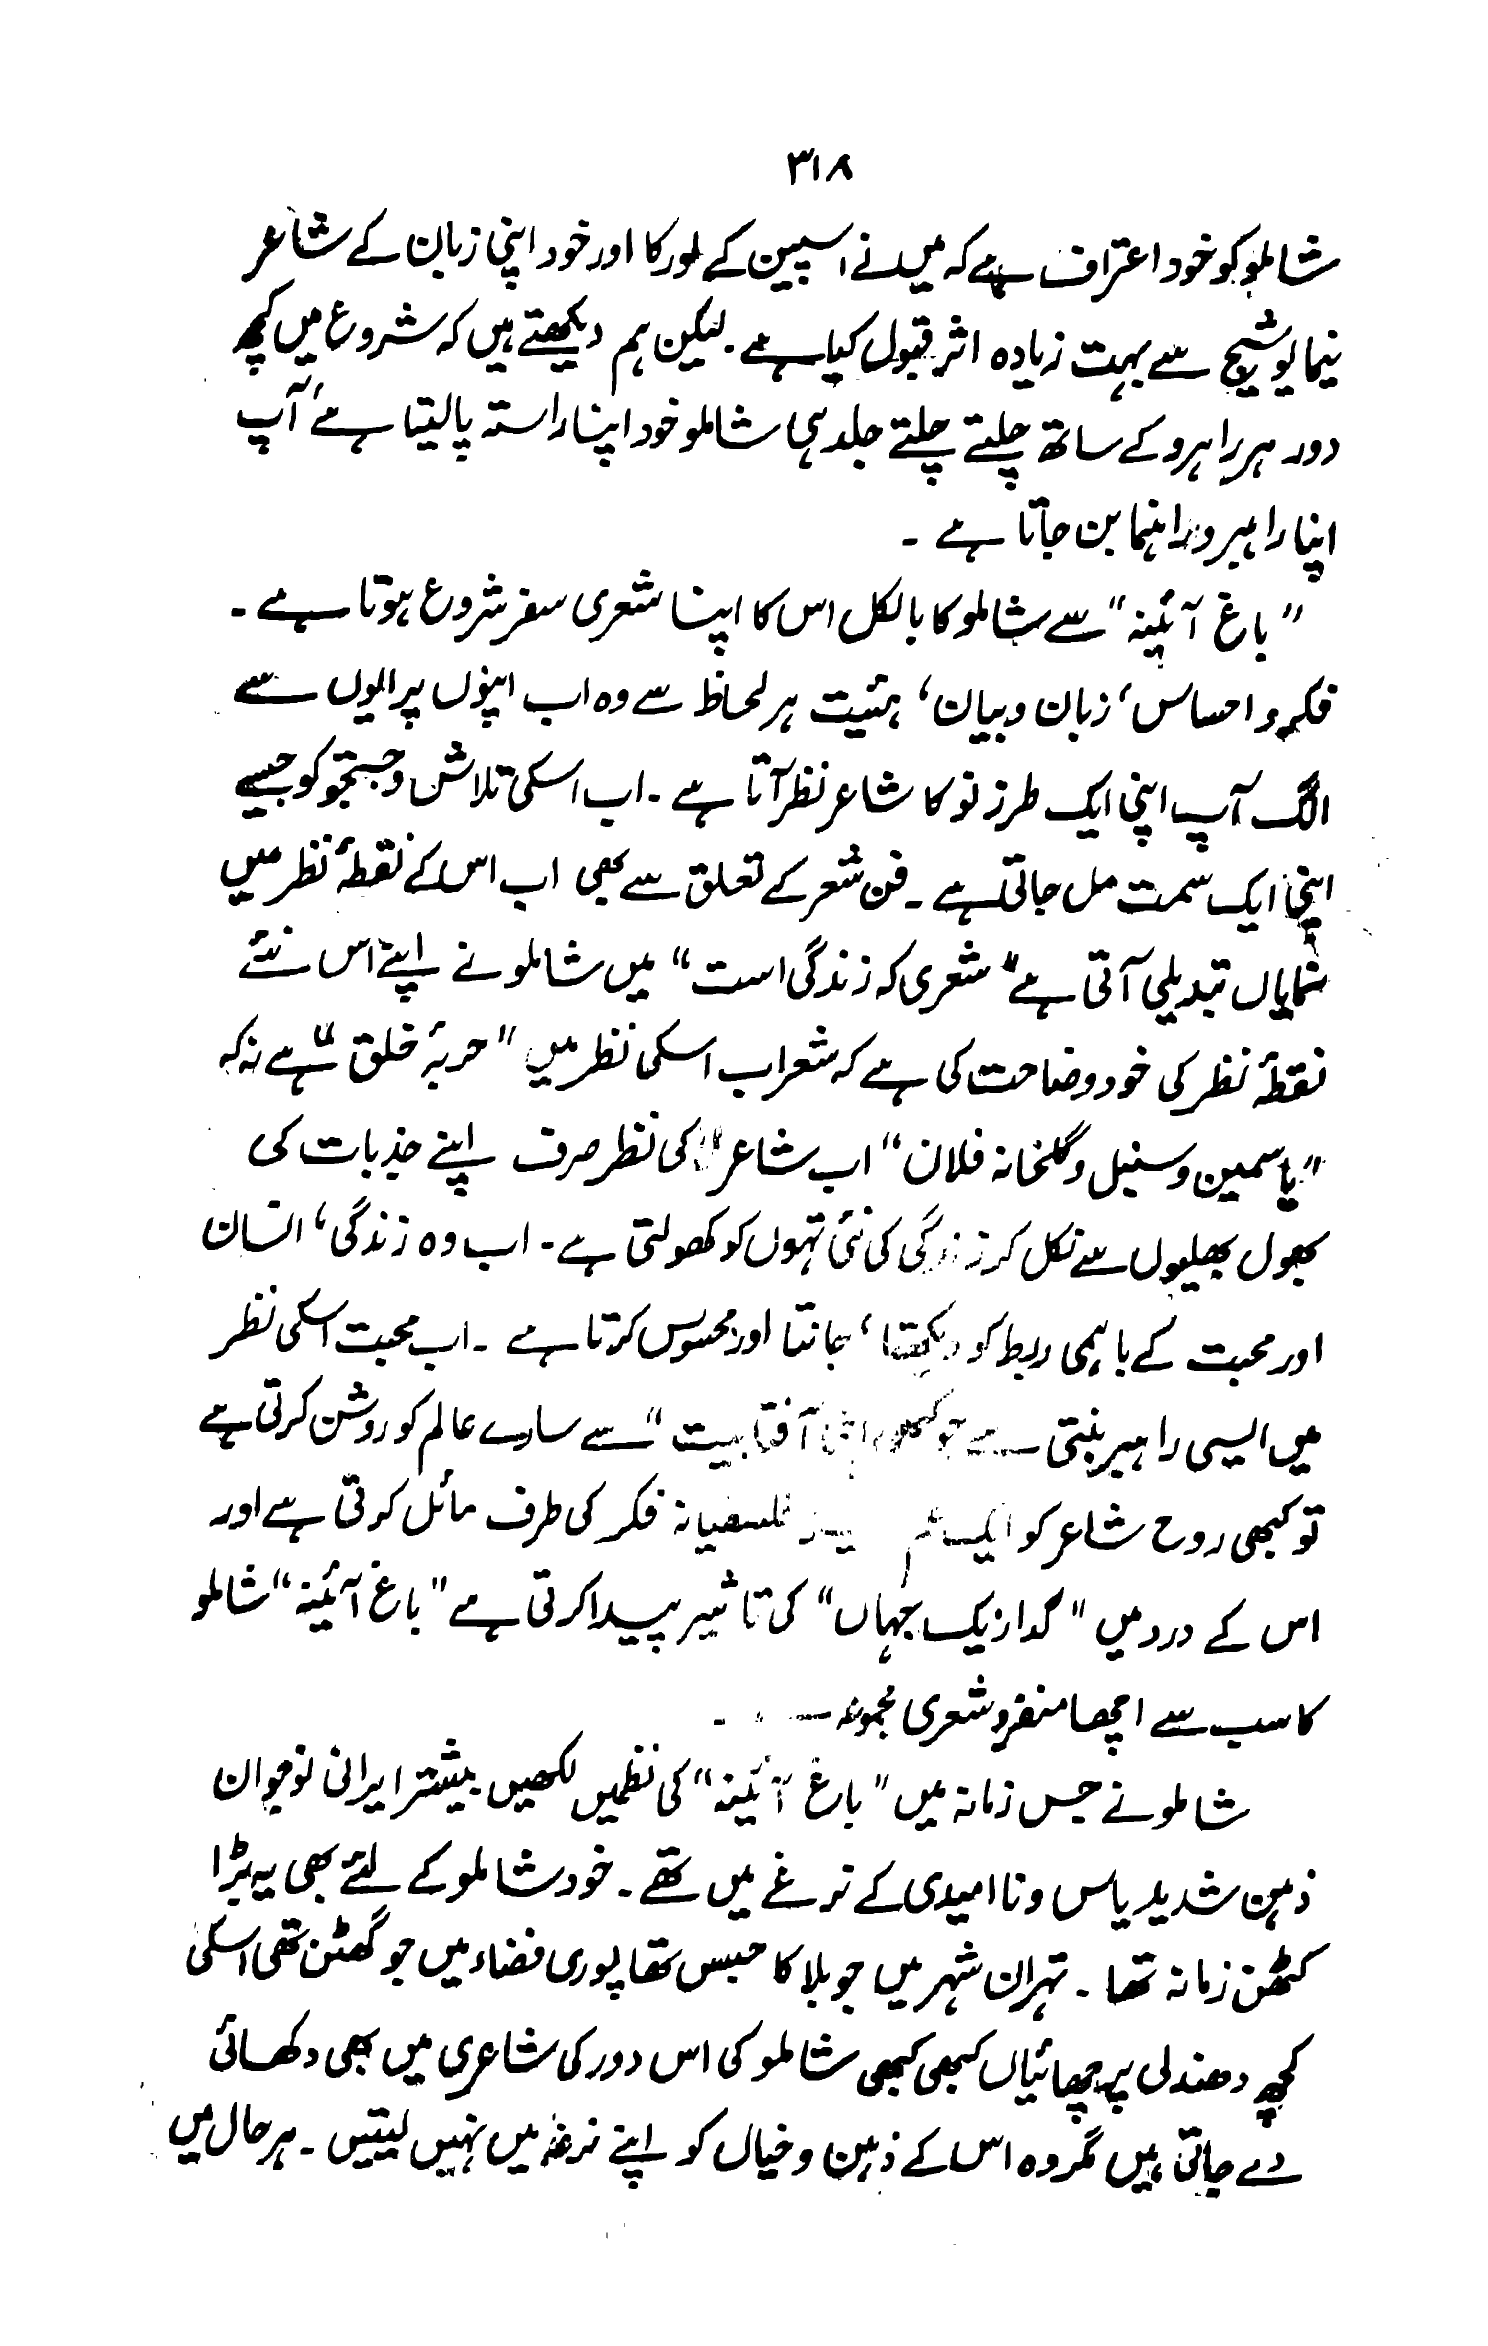 ۳۱۸
شاملو کو خود اعتراف ہے کہ میں نے اسپین کے لورکا اور خود اپنی زبان کے شاعر
نیما یوشیج سے بہت زیادہ اثر قبول کیا ہے۔ لیکن ہم دیکھتے ہیں کہ شروع میں کچھ
دور ہر راہرو کے ساتھ چلتے چلتے جلد ہی شاملو خود اپنا راستہ پا لیتا ہے، آپ
اپنا راہبر و راہنما بن جاتا ہے ۔
"باغ آئینہ" سے شاملو کا بالکل اس کا اپنا شعری سفر شروع ہوتا ہے ۔
فکر و احساس، زبان و بیان، ہئیت ہر لحاظ سے وہ اب اپنوں پرایوں سے
الگ آپ اپنی ایک طرز نو کا شاعر نظر آتا ہے ۔ اب اسکی تلاش و جستجو کو جیسے
اپنی ایک سمت مل جاتی ہے ۔ فن شعر کے تعلق سے بھی اب اس کے نقطۂ نظر میں
نمایاں تبدیلی آتی ہے "شعری کہ زندگی است" میں شاملو نے اپنے اس نئے
نقطۂ نظر کی خود وضاحت کی ہے کہ شعر اب اسکی نظر میں "حربۂ خلق" ہے نہ کہ
"یاسمین و سنبل و گلخانہ فلان" اب شاعر کی نظر صرف اپنے جذبات کی
بھول بھلیوں سے نکل کر زندگی کی نئی تہوں کو کھولتی ہے ۔ اب وہ زندگی، انسان
اور محبت کے باہمی ربط کو دیکھتا، جانتا اور محسوس کرتا ہے ۔ اب محبت اسکی نظر
میں ایسی راہبر بنتی ہے جو کبھی اپنی آفتابیت" سے سارے عالم کو روشن کرتی ہے
تو کبھی روح شاعر کو ایک فلسفیانہ فکر کی طرف مائل کرتی ہے اور
اس کے درد میں "گداز یک جہاں" کی تاثیر پیدا کرتی ہے "باغ آئینہ" شاملو
کا سب سے اچھا منفرد شعری مجموعہ ۔
شاملو نے جس زمانہ میں "باغ آئینہ" کی نظمیں لکھیں بیشتر ایرانی نوجوان
ذہن شدید یاس و ناامیدی کے نرغے میں تھے ۔ خود شاملو کے لئے بھی یہ بڑا
کٹھن زمانہ تھا ۔ تہران شہر میں جو بلا کا حبس تھا پوری فضاء میں جو گھٹن تھی اسکی
کچھ دھندلی پرچھائیاں کبھی کبھی شاملو کی اس دور کی شاعری میں بھی دکھائی
دے جاتی ہیں مگر وہ اس کے ذہن و خیال کو اپنے نرغہ میں نہیں لیتیں ۔ ہر حال میں